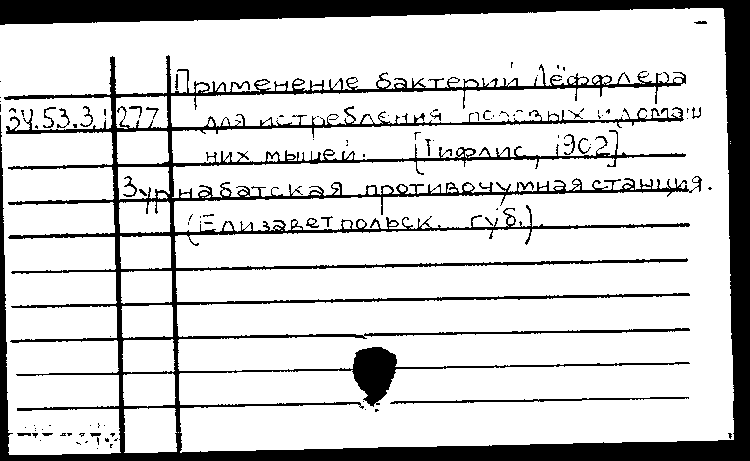 Применение бактерий Лёффлера
34.53.3.1 277 для истребления полевых и домаш
них мышей. [Тифлис, 1902]
Зурнабатская противочумная станция.
(Елизаветпольск. губ.).